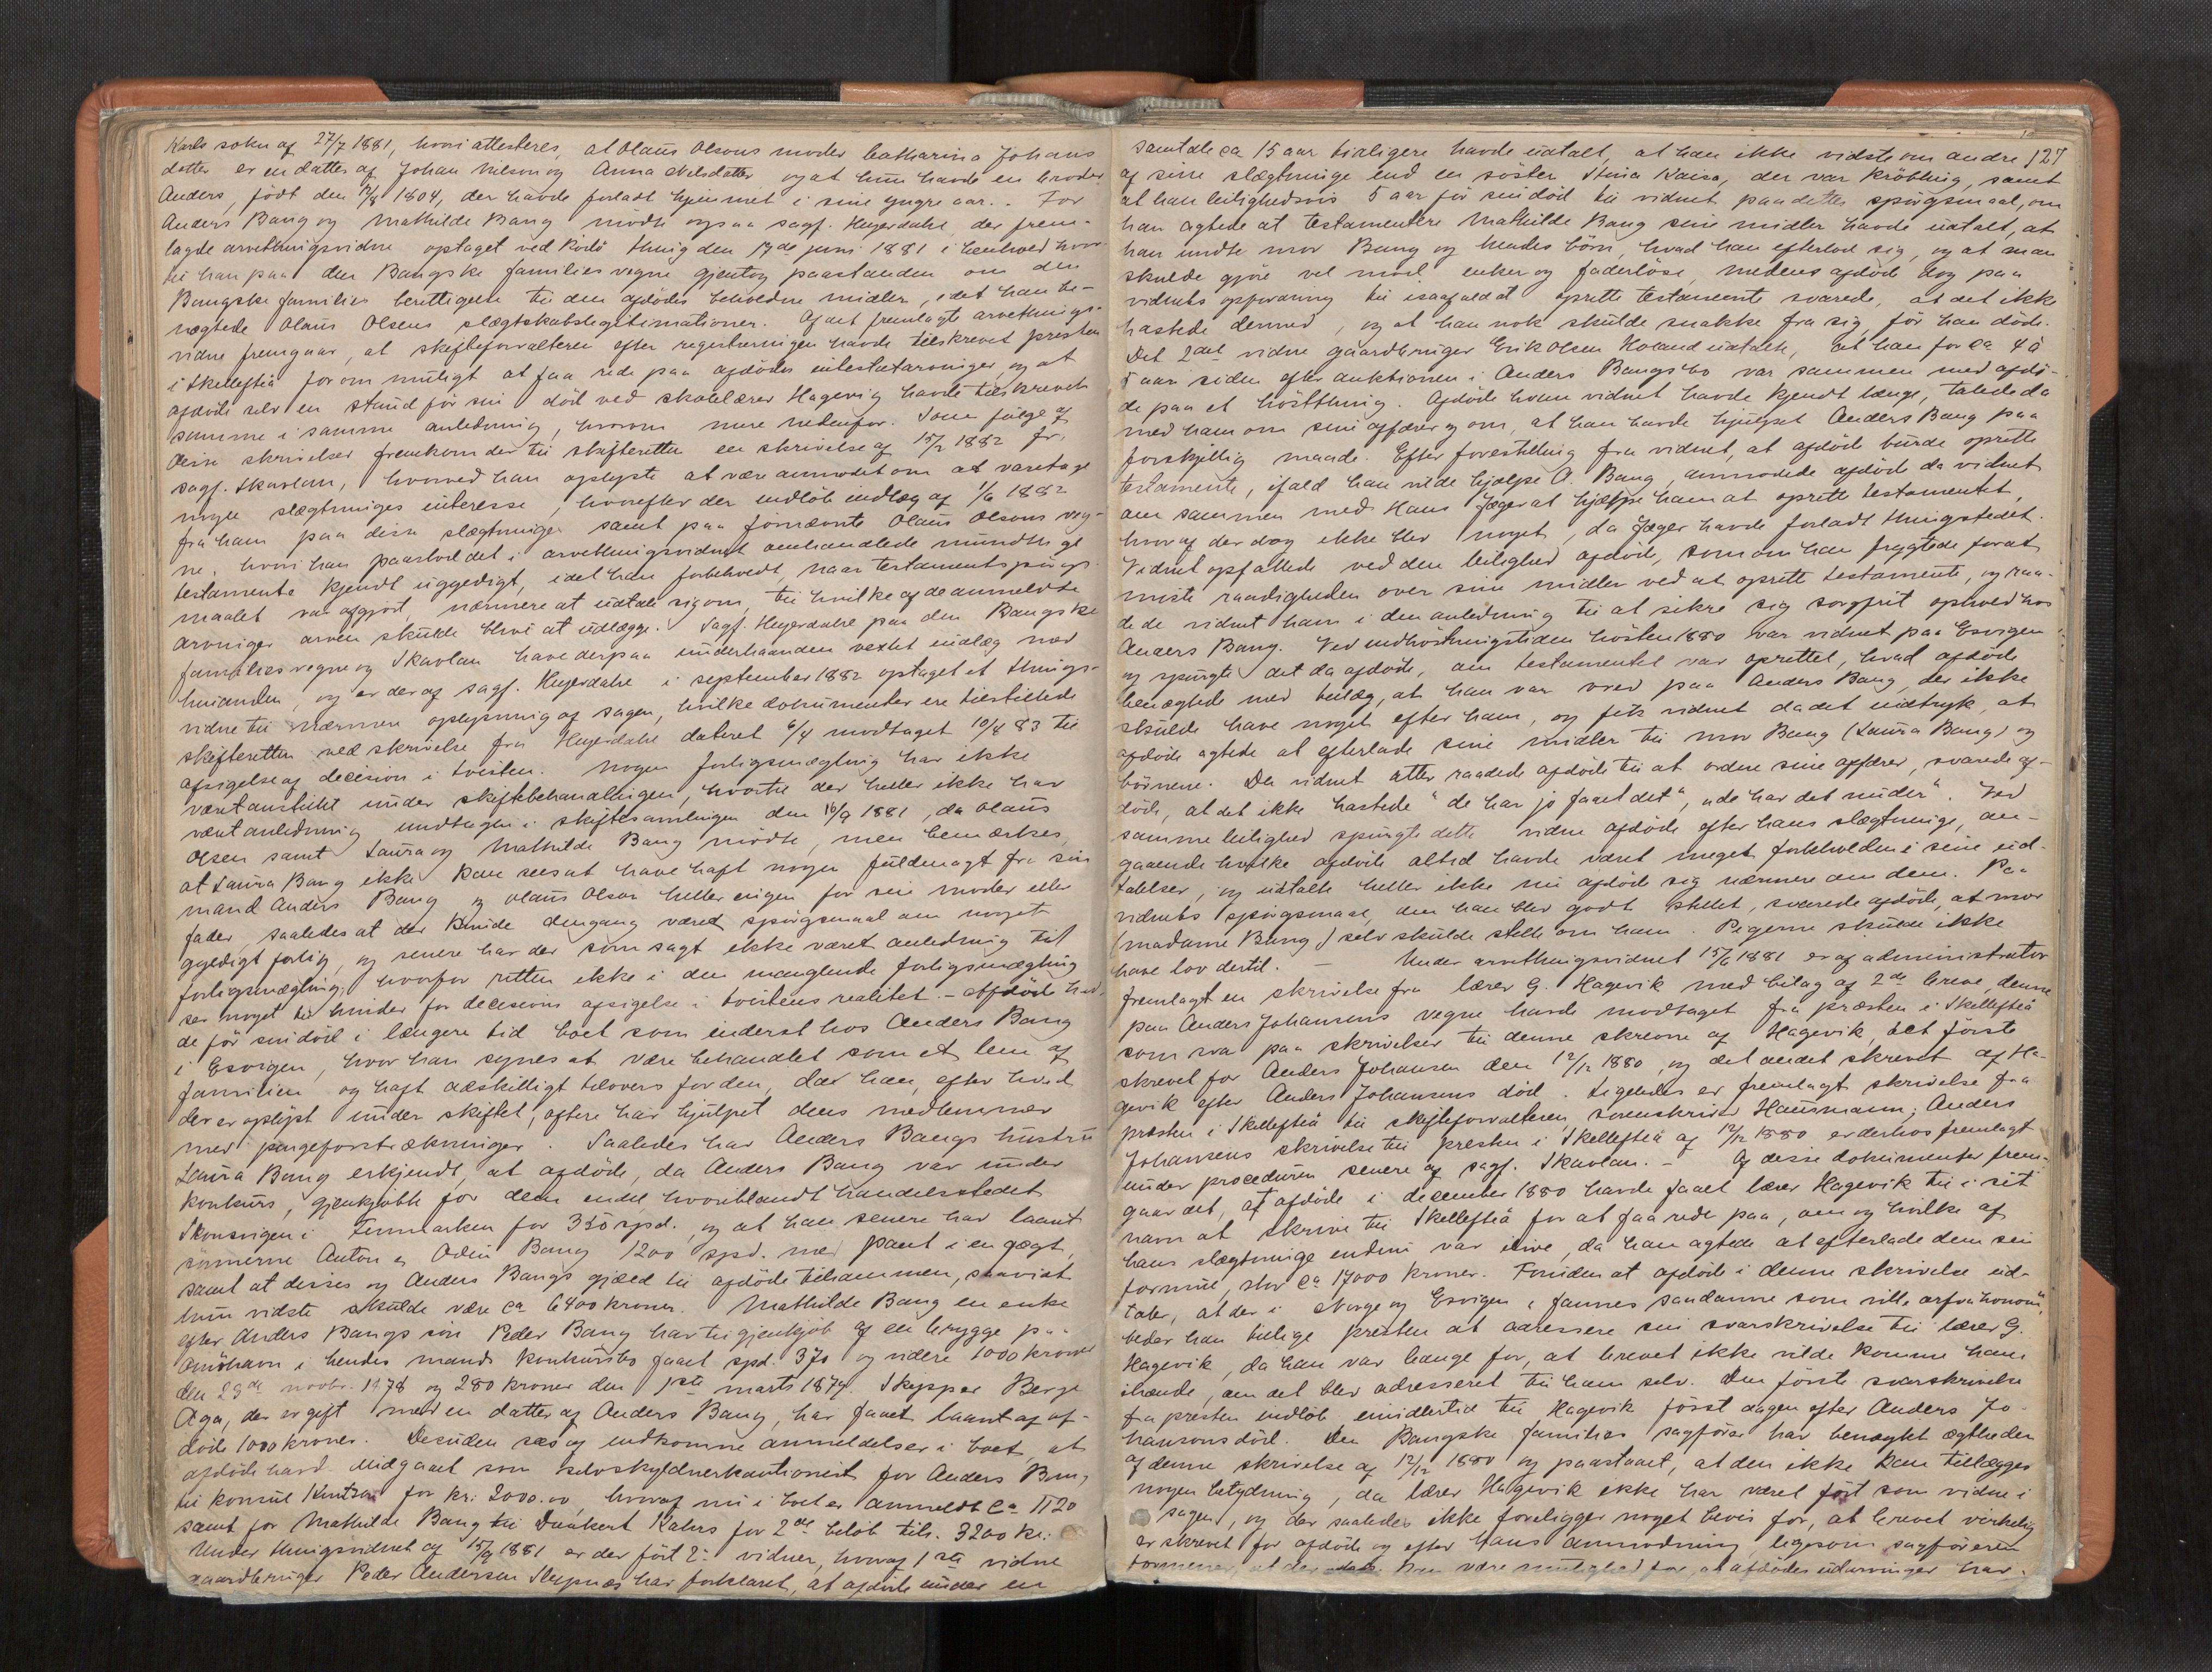 Karls sokn af 27/7 1881, hvori attesteres, at Olaus Olsons moder Catharina Johans
datter er en datter af Johan Nilson og Anna Nilsdatter og at hun havde en broder
Anders, födt den 12/8 1804, der havde forladt hjemmet i sine yngre aar. - For
Anders Bang og Mathilde Bang mödte ogsaa sagf. Heyerdahl, der frem-
lagde arvethingsvidne optaget ved Rödö thing den 17de juni 1881 i henhold hvor-
til han paa den Bangske families vegne gjentog paastanden om den
Bangske families berettigelse til den afdödes beholdne midler, idet han be-
nægtede Olaus Olsens slægtskabslegitimationer. Af det fremlagte arvethings-
vidne fremgaar, at skifteforvalteren efter registreringen havde tilskrevet presten
i Skellefteå for om muligt at faa rede paa afdödes intestatarvinger, og at
afdöde selv en stund för sin död ved skolelærer Hagevig havde tilskrevet
samme i samme anledning, hvorom mere nedenfor. Som fölge af
disse skrivelser fremkom der til skifteretten en skrivelse af 15/2 1882 fra
sagf. Skavlan, hvorved han oplyste at være anmodet om at varetage
nogle slægtninges interesse, hvorefter der indlöb indlæg af 1/6 1882
fra ham paa disse slægtninger samt paa förnævnte Olaus Olsons veg-
ne, hvori han paastod det i arvethingsvidnet omhandlede mundtlige
testamente kjendt ugyldigt, idet han forbeholdt, naar testamentspörgs-
maalet var afgjort, nærmere at udtale sig om, til hvilke af de anmeldte
arvinger arven skulde blive at udlægge. Sagf. Heyerdahl paa den Bangske
families vegne og Skavlan have derpaa underhaanden vexlet indlæg med
hinanden, og er der af sagf. Heyerdahl i september 1882 optaget et things-
vidne til nærmere oplysning af sagen, hvilke dokumenter ere tilstillede
skifteretten ved skrivelse fra Heyerdahl dateret 6/4 modtaget 10/8 83 til
afsigelse af decision i tvisten. Nogen forligsmægling har ikke
været anstillet under skiftebehandlingen, hvortil der heller ikke har
været anledning undtagen i skiftesamlingen den 16/9 1881, da Olaus
Olsen samt Laura og Mathilde Bang mödte, men bemærkes,
at Laura Bang ikke kan sees at have haft nogen fuldmagt fra sin
mand Anders Bang og Olaus Olson heller ingen for sin moder eller
fader, saaledes at der kunde dengang været spörgsmaal om noget
gyldigt forlig, og senere har der som sagt ikke været anledning til
forligsmægling, hvorfor retten ikke i den manglende forligsmægling
ser noget til hinder for decisions afsigelse i tvistens realitet. - Afdöde hav-
de för sin död i længere tid boet som inderst hos Anders Bang
i Esvigen, hvor han synes at være behandlet som et lem af
familien og haft adskilligt tilovers for den, dær han, efter hvad
der er oplyst under skiftet, oftere har hjulpet dens medlemmer
med pengeforstrækninger. Saaledes har Anders Bangs hustru
Laura Bang erkjendt, at afdöde, da Anders Bang var under
konkurs, gjenkjöbte for dem endel, hvoriblandt handelsstedet
Skonsvigen i Finmarken for 350 spd. og at han senere har laant
sönnerne Anton og Odin Bang 1200 spd. med pant i en jægt,
samt at disses og Anders Bangs gjæld til afdöde tilsammen, saavidt
hun vidste skulde være ca 6400 kroner. Mathilde Bang en enke
efter Anders Bangs sön Peder Bang har til gjenkjöb af en brygge paa
Önöhavn i hendes mands konkursbo faaet spd. 370 og videre 1000 kroner
den 23de novbr. 1878 og 280 kroner den 1ste marts 1879. Skipper Berge
Aga, der er gift med en datter af Anders Bang, har faaet laant af af-
döde 1000 kroner. Desuden sees og indkomne anmeldelser i boet, at
afdöde havd. indgaaet som selvskyldnerkautionist for Anders Bang
til konsul Knutson for kr. 2000.00, hvoraf nu i boet er anmeldt ca 1120
samt for Mathilde Bang til Dunkert Kahrs for 2de belöb tils. 3200 kr.
Under thingsvidnet af 15/9 1881 er der fört 2 vidner, hvoraf 1ste vidne
gaardbruger Peder Andersen Slepnæs har forklaret, at afdöde under en
127
samtale ca 15 aar tidligere havde udtalt, at han ikke vidste om andre
af sine slægtninge end en söster Stina Kaisa, der var kröbling, samt
at han leilighedsvis 5 aar för sin död til vidnet paa dettes spörgsmaal, om
han agtede at testamentere Mathilde Bang sine midler havde udtalt, at
han undte mor Bang og hendes börn, hvad han efterlod sig, og at man
skulde gjöre vel mod enker og faderlöse, medens afdöde dog paa
vidnets opfordring til isaafald at oprette testamente svarede, at det ikke
hastede dermed, og at han nok skulde snakke fra sig, för han döde.
Det 2det vidne gaardbruger Erik Olsen Holand udtalte, at han for ca 4 à
5 aar siden efter auktionen i Anders Bangs bo var sammen med afdö-
de paa et höstthing. Afdöde hvem vidnet havde kjendt længe, talede da
med ham om sine affærer og om, at han havde hjulpet Anders Bang paa
forskjellig maade. Efter forestilling fra vidnet, at afdöde burde oprette
testamente, ifald han vilde hjælpe A. Bang, anmodede afdöde da vidnet
om sammen med Hans Jæger at hjælpe ham at oprette testamentet,
hvoraf der dog ikke blev noget, da Jæger havde forladt thingstedet.
Vidnet opfattede ved den leilighed afdöde, som om han frygtede for at
miste raadigheden over sine midler ved at oprette testamente, og raa-
dede vidnet ham i den anledning til at sikre sig sorgfrit ophold hos
Anders Bang. Ved indhöstningstiden hösten 1880 var vidnet paa Esvigen
og spurgte det da afdöde, om testamentet var oprettet, hvad afdöde
benægtede med tillæg, at han var vred paa Anders Bang, der ikke
skulde have noget efter ham, og fik vidnet da det indtryk, at
afdöde agtede at efterlade sine midler til mor Bang (Laura Bang) og
börnene. Da vidnet atter raadede afdöde til at ordne sine affærer, svarede af-
döde, at det ikke hastede "de har jo faaet det", "de har det under". Ved
samme leilighed spurgte dette vidne afdöde efter hans slægtninge, an-
gaaende hvilke afdöde altid havde været meget forbeholden i sine ud-
talelser, og udtalte heller ikke nu afdöde sig nærmere om dem. Paa
vidnets spörgsmaal, om han blev godt stellet, svarede afdöde, at mor
(madame Bang) selv skulde stelle om ham. Pigerne skulde ikke
have lov dertil. - Under arvethingsvidnet 15/6 1881 er af administrator
fremlagt en skrivelse fra lærer G. Hagevik med bilag af 2de breve, denne
paa Anders Johansens vegne havde modtaget fra præsten i Skellefteå
som svar paa skrivelser til denne skrevne af Hagevik, det förste
skrevet for Anders Johansen den 12/12 1880, og det andet skrevet af Ha-
gevik efter Anders Johansens död. Ligeledes er fremlagt skrivelse fra
præsten i Skellefteå til skifteforvalteren, sorenskriver Hausmann; Anders
Johansens skrivelse til presten i Skellefteå af 12/12 1880 er derhos fremlagt
under proceduren senere af sagf. Skavlan. - Af disse dokumenter frem-
gaar det, at afdöde i december 1880 havde faaet lærer Hagevik til i sit
navn at skrive til Skellefteå for at faa rede paa, om og hvilke af
hans slægtninge endnu var ilive, da han agtede at efterlade dem sin
formue, stor ca 17000 kroner. Foruden at afdöde i denne skrivelse ud-
taler, at der i Norge og Esvigen "fannes saadanne som ville arfva honom",
beder han tillige presten at adressere sin svarskrivelse til lærer G.
Hagevik, da han var bange for, at brevet ikke vilde komme ham
ihænde, om det blev adresseret til ham selv. Den förste svarskrivelse
fra presten indlöb imidlertid til Hagevik först dagen efter Anders Jo-
hansons död. Den Bangske families sagförer har benægtet ægtheden
af denne skrivelse af 12/12 1880 og paastaaet, at den ikke kan tillægges
nogen betydning, da lærer Hagevik ikke har været fört som vidne i
sagen, og der saaledes ikke foreligger noget bevis for, at brevet virkelig
er skrevet for afdöde og efter hans anmodning ligesom sagföreren
formener, at der kan være mulighed for, at afdödes udarvinger har